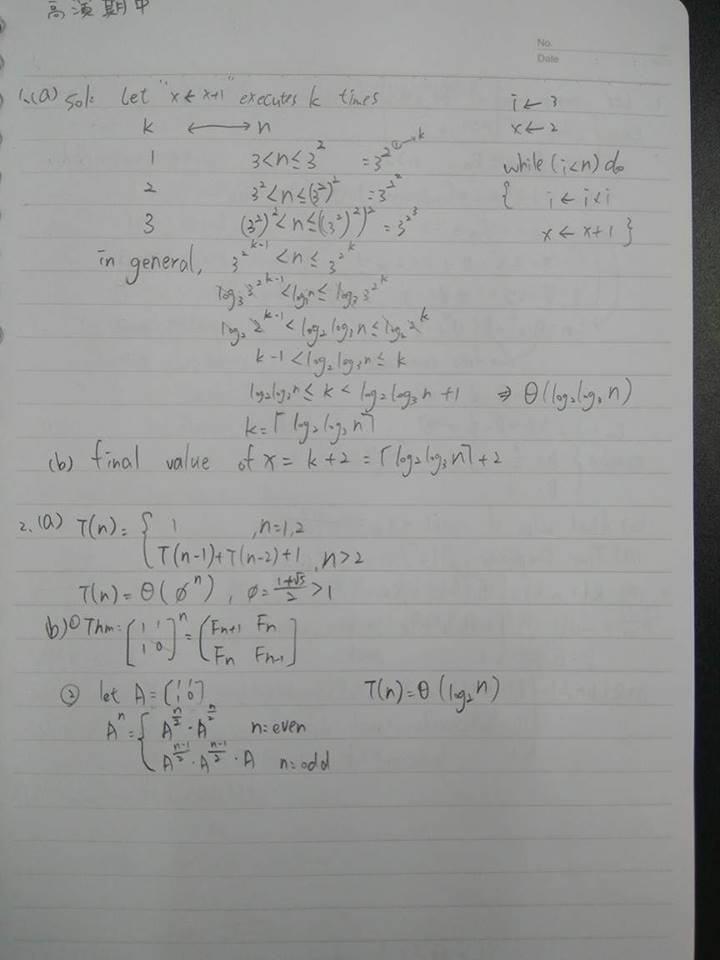 高演期中
No.
Date
1.(a) Sol: Let "x ← x+1" executes k times
k ⟷ n
1 3 < n ≤ 3^2 = 3^{2^{①→k}}
2 3^2 < n ≤ (3^2)^2 = 3^{2^2}
3 (3^2)^2 < n ≤ ((3^2)^2)^2 = 3^{2^3}
in general, 3^{2^{k-1}} < n ≤ 3^{2^k}
log_3 3^{2^{k-1}} < log_3 n ≤ log_3 3^{2^k}
log_2 2^{k-1} < log_2 log_3 n ≤ log_2 2^k
k-1 < log_2 log_3 n ≤ k
log_2 log_3 n ≤ k < log_2 log_3 n + 1 ⇒ Θ(log_2 log_3 n)
k = ⌈log_2 log_3 n⌉
i ← 3
x ← 2
while (i<n) do
{ i ← i×i
x ← x+1 }
(b) final value of x = k+2 = ⌈log_2 log_3 n⌉ + 2
2.(a) T(n) = { 1 , n=1,2
T(n-1)+T(n-2)+1 , n>2
T(n) = Θ(φ^n) , φ = (1+√5)/2 > 1
b) ① Thm: [1 1; 1 0]^n = [F_{n+1} F_n; F_n F_{n-1}]
② let A = [1 1; 1 0] T(n) = Θ(log_2 n)
A^n = { A^{n/2} · A^{n/2} n=even
A^{(n-1)/2} · A^{(n-1)/2} · A n=odd